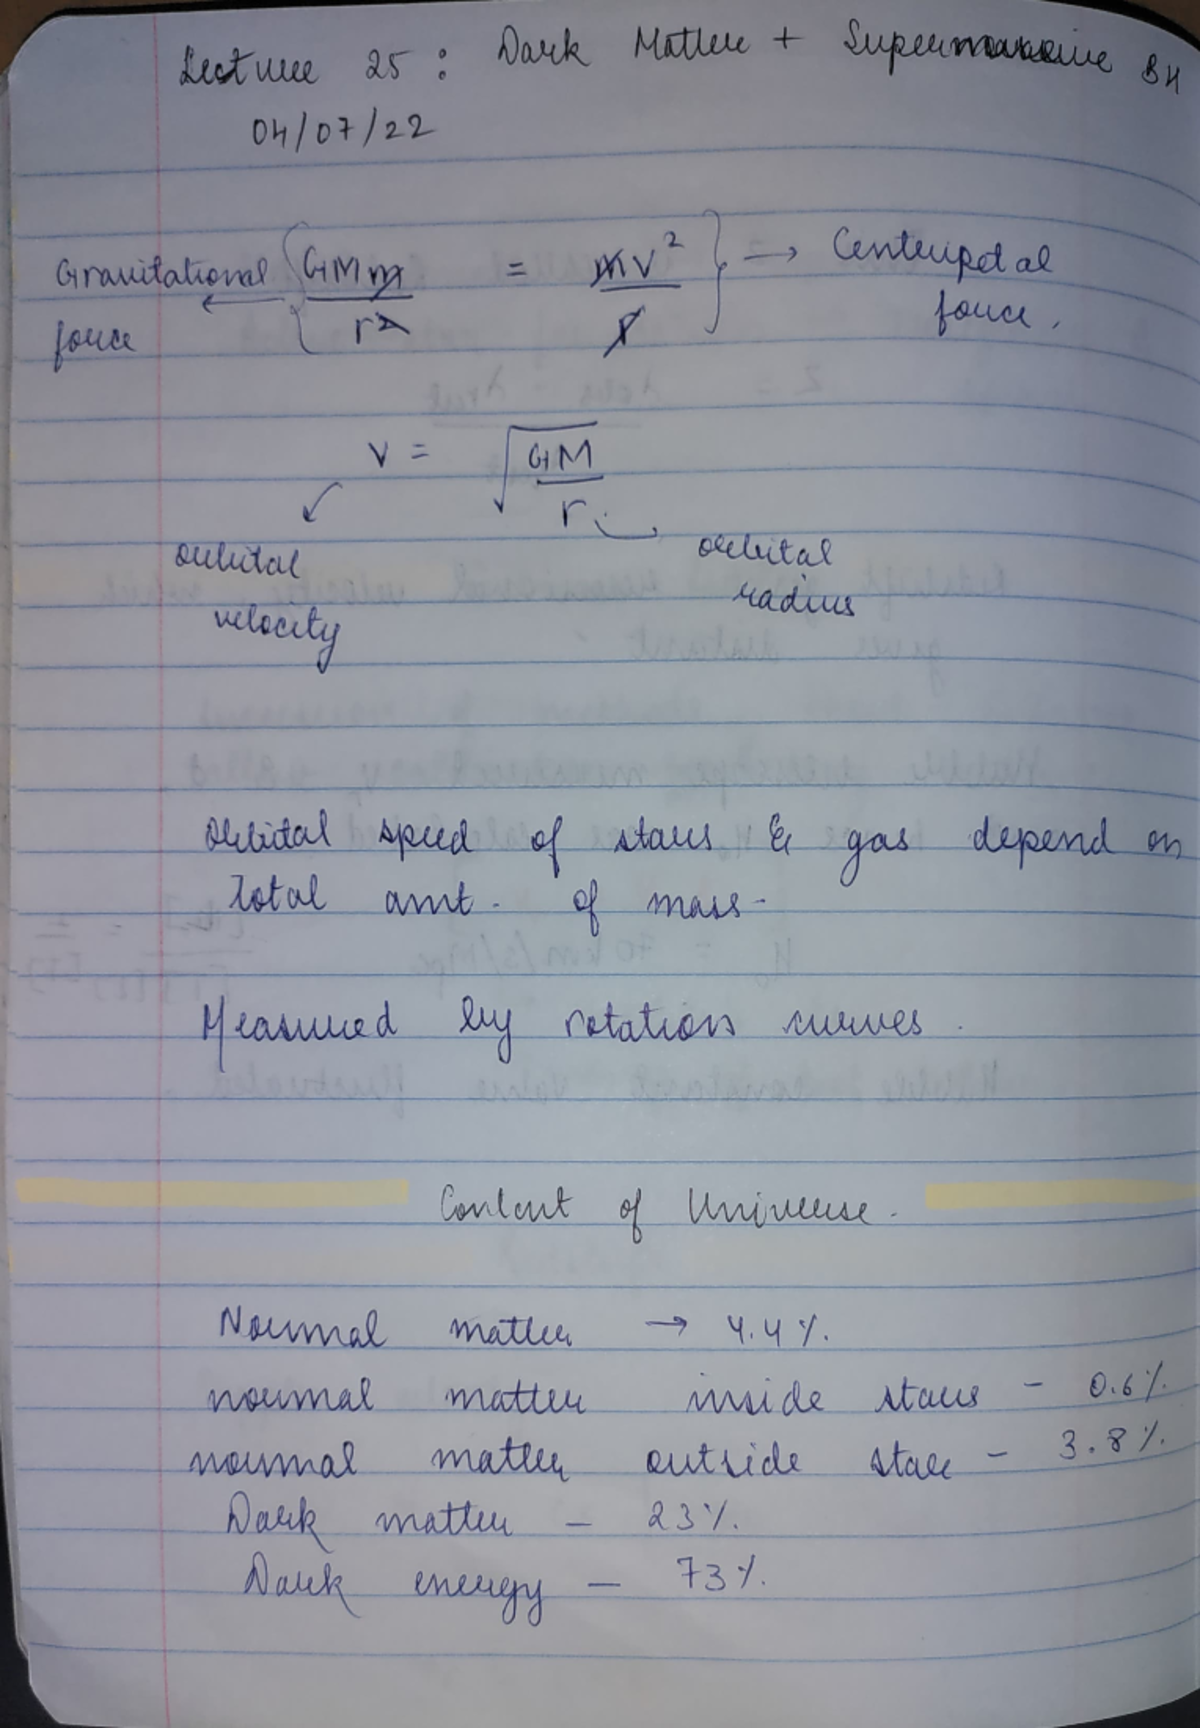 Lecture 25: Dark Matter + Supermassive BH
04/07/22
Gravitational force ← { GMm/r² = mv²/r } → Centripetal force.
v = √(GM/r)
orbital velocity
orbital radius
Orbital speed of stars & gas depend on
total amt. of mass.
Measured by rotation curves.
Content of Universe.
Normal matter → 4.4%.
normal matter inside stars - 0.6%.
normal matter outside star - 3.8%.
Dark matter - 23%.
Dark energy - 73%.